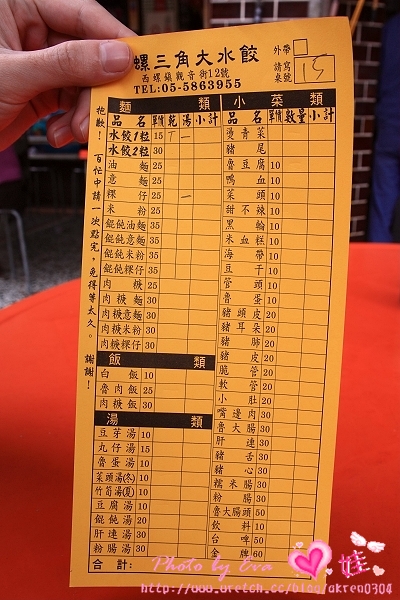 螺三角大水餃
西螺鎮觀音街12號
TEL:05-5863955
外帶
請寫桌號 15
抱歉！百忙中請一次點完，免得等太久。謝謝！
麵 類
品名 單價 乾 湯 小計
水餃1粒 15 T
水餃2粒 30
油麵 25
意麵 25
粿仔 25 一
米粉 25
餛飩油麵 35
餛飩意麵 35
餛飩米粉 35
餛飩粿仔 35
肉糖 25
肉糖麵 30
肉糖意麵 30
肉糖米粉 30
肉糖粿仔 30
飯 類
白飯 10
魯肉飯 25
肉糖飯 30
湯 類
豆芽湯 10
丸仔湯 15
魯蛋湯 10
菜頭湯(冬) 10
竹筍湯(夏) 10
豆腐湯 10
餛飩湯 20
肝連湯 30
粉腸湯 30
合計：
小菜類
品名 單價 數量 小計
燙青菜
豬尾
魯豆腐 10
鴨血 10
菜頭 10
甜不辣 10
黑輪 10
米血糕 10
海帶 10
豆干 10
管頭 10
魯蛋 10
豬頭皮 20
豬耳朵 20
豬肺 20
豬皮 20
脆管 20
軟管 20
小肚 20
嘴邊肉 30
魯大腸 30
肝連 30
豬舌 30
豬心 30
糯米腸 30
粉腸 30
魯大腸頭 50
飲料 10
台啤 50
金牌 60
Photo by Eva 娃
http://www.wretch.cc/blog/akren0304